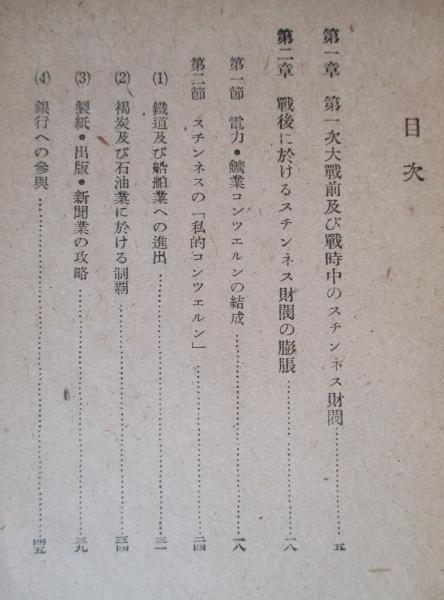 目次
第一章 第一次大戰前及び戰時中のスチンネス財閥…………五
第二章 戰後に於けるスチンネス財閥の膨脹…………一八
第一節 電力・鑛業コンツエルンの結成…………一八
第二節 スチンネスの「私的コンツエルン」…………二四
(1) 鐵道及び船舶業への進出…………三一
(2) 褐炭及び石油業に於ける制覇…………三四
(3) 製紙・出版・新聞業の攻略…………三九
(4) 銀行への參與…………四五